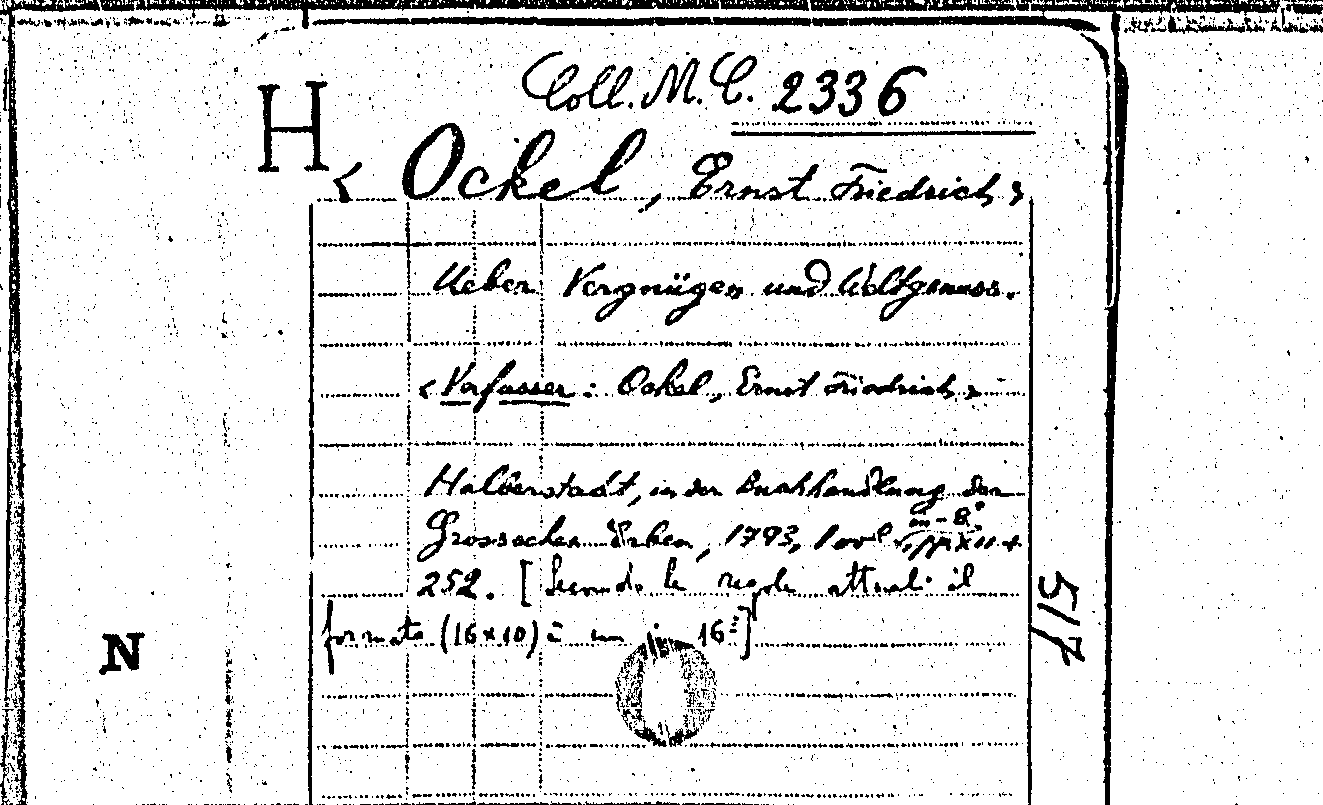 Coll. M. C. 2336
H
< Ockel, Ernst Friedrich >
Ueber Vergnügen und Weltgenuss.
< Verfasser : Ockel, Ernst Friedrich >
Halberstadt, in der Buchhandlung der
in-8°
Grossschen Erben, 1793, 1 vol pp XII +
252. [Secondo le regole attuali il
formato (16x10) è un in 16°]
517
N